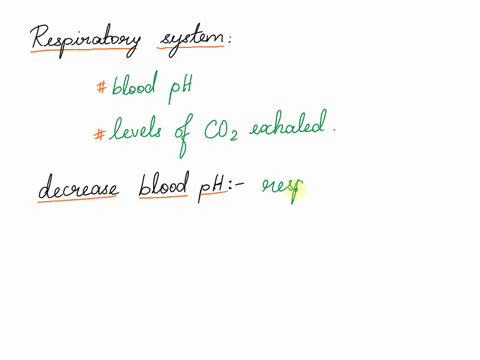 Respiratory system:
# blood pH
# levels of CO2 exhaled.
decrease blood pH:- resp